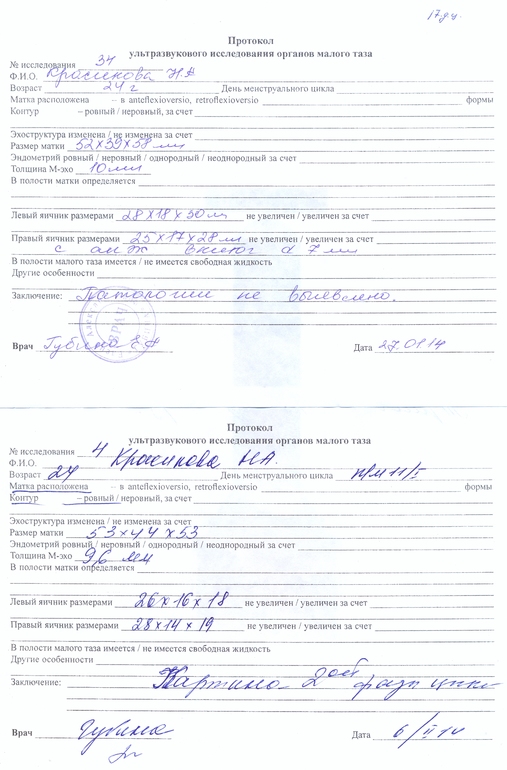 17 дч.
Протокол
ультразвукового исследования органов малого таза
№ исследования 34
Ф.И.О. Красикова Н А
Возраст 24 г День менструального цикла
Матка расположена – в anteflexioversio, retroflexioversio формы
Контур – ровный / неровный, за счет
Эхоструктура изменена / не изменена за счет
Размер матки 52х39х38 мм
Эндометрий ровный / неровный / однородный / неоднородный за счет
Толщина М-эхо 10 мм
В полости матки определяется
Левый яичник размерами 28х18х30 м не увеличен / увеличен за счет
Правый яичник размерами 25х17х28 м не увеличен / увеличен за счет
с d 7 мм
В полости малого таза имеется / не имеется свободная жидкость
Другие особенности
Заключение: Патологии не выявлено.
Врач Губина Е А Дата 27.01.14
Протокол
ультразвукового исследования органов малого таза
№ исследования 4
Ф.И.О. Красикова НА.
Возраст 24 День менструального цикла п/м 11/I
Матка расположена – в anteflexioversio, retroflexioversio формы
Контур – ровный / неровный, за счет
Эхоструктура изменена / не изменена за счет
Размер матки 53х44х53
Эндометрий ровный / неровный / однородный / неоднородный за счет
Толщина М-эхо 9,6 мм
В полости матки определяется
Левый яичник размерами 26х16х18 не увеличен / увеличен за счет
Правый яичник размерами 28х14х19 не увеличен / увеличен за счет
В полости малого таза имеется / не имеется свободная жидкость
Другие особенности
Заключение: Картина 2ой фазы цикла
Врач Губина Дата 6/II 14